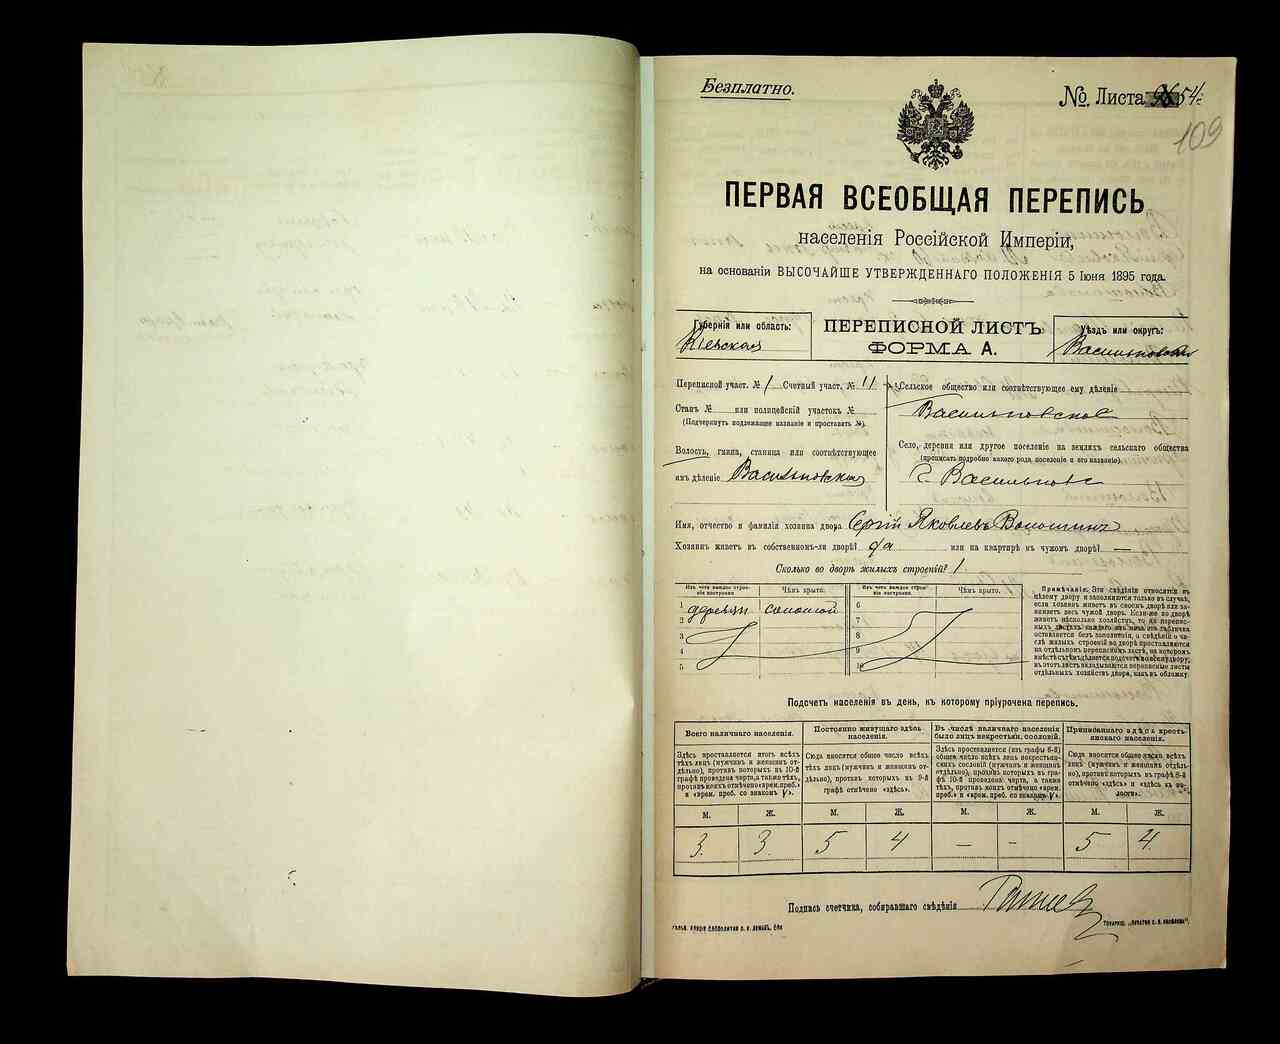 Безплатно.
№. Листа 54.
109
ПЕРВАЯ ВСЕОБЩАЯ ПЕРЕПИСЬ
населенія Россійской Имперіи,
на основаніи ВЫСОЧАЙШЕ УТВЕРЖДЕННАГО ПОЛОЖЕНІЯ 5 Іюня 1895 года.
Губернія или область:
Кіевская
ПЕРЕПИСНОЙ ЛИСТЪ
ФОРМА А.
Уѣздъ или округъ:
Васильковскій
Переписной участ. № 1 Счетный участ. № 11
Станъ № или полицейскій участокъ №
(Подчеркнуть подлежащее названіе и проставить №).
Волость, гмина, станица или соотвѣтствующее
имъ дѣленіе Васильковская
Сельское общество или соотвѣтствующее ему дѣленіе
Васильковское
Село, деревня или другое поселеніе на земляхъ сельскаго общества
(прописать подробно какого рода поселеніе и его названіе)
г. Васильковъ
Имя, отчество и фамилія хозяина двора Сергій Яковлевъ Волошинъ
Хозяинъ живетъ въ собственномъ-ли дворѣ? да или на квартирѣ въ чужомъ дворѣ? —
Сколько во дворѣ жилыхъ строеній? 1
Изъ чего каждое строе-
ніе построено
Чѣмъ крыто.
Изъ чего каждое строе-
ніе построено
Чѣмъ крыто.
1 деревян соломой
2
3
4
5
6
7
8
9
10
Примѣчаніе. Эти свѣдѣнія относятся къ
цѣлому двору и заполняются только въ случаѣ,
если хозяинъ живетъ въ своемъ дворѣ или за-
нимаетъ весь чужой дворъ. Если-же во дворѣ
живетъ нѣсколько хозяйствъ, то на перепис-
ныхъ листахъ каждаго изъ нихъ эта табличка
оставляется безъ заполненія, а свѣдѣнія о чи-
слѣ жилыхъ строеній во дворѣ проставляются
на отдѣльномъ переписномъ листѣ, на которомъ
вмѣстѣ съ тѣмъ дѣлается подсчетъ по всему двору;
въ этотъ листъ вкладываются переписные листы
отдѣльныхъ хозяйствъ двора, какъ въ обложку.
Подсчетъ населенія въ день, къ которому пріурочена перепись.
Всего наличнаго населенія.
Здѣсь проставляется итогъ всѣхъ
тѣхъ лицъ (мужчинъ и женщинъ от-
дѣльно), противъ которыхъ въ 10-й
графѣ проведена черта, а также тѣхъ,
противъ коихъ отмѣчено «врем. преб.»
и «врем. преб. со знакомъ V».
Постоянно живущаго здѣсь
населенія.
Сюда вносится общее число всѣхъ
тѣхъ лицъ (мужчинъ и женщинъ от-
дѣльно), противъ которыхъ въ 9-й
графѣ отмѣчено «здѣсь».
Въ числѣ наличнаго населенія
было лицъ некрестьян. сословій.
Здѣсь проставляется (изъ графы 6-й)
общее число всѣхъ лицъ некрестьян-
скихъ сословій (мужчинъ и женщинъ
отдѣльно), противъ которыхъ въ гра-
фѣ 10-й проведена черта, а также
тѣхъ, противъ коихъ отмѣчено «врем.
преб.» и «врем. преб. со знакомъ V».
Приписаннаго здѣсь кресть-
янскаго населенія.
Сюда вносится общее число всѣхъ
лицъ (мужчинъ и женщинъ отдѣль-
но), противъ которыхъ въ графѣ 8-й
отмѣчено «здѣсь» и «здѣсь къ во-
лости».
М. Ж. М. Ж. М. Ж. М. Ж.
3. 3. 5 4 — - 5 4.
Подпись счетчика, собиравшаго свѣдѣнія